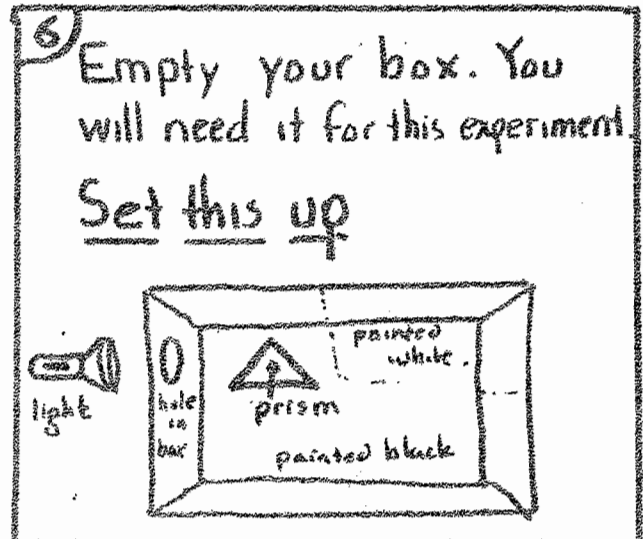 6
Empty your box. You
will need it for this experiment.
Set this up
light
hole
in
bar
prism
painted
white.
painted black